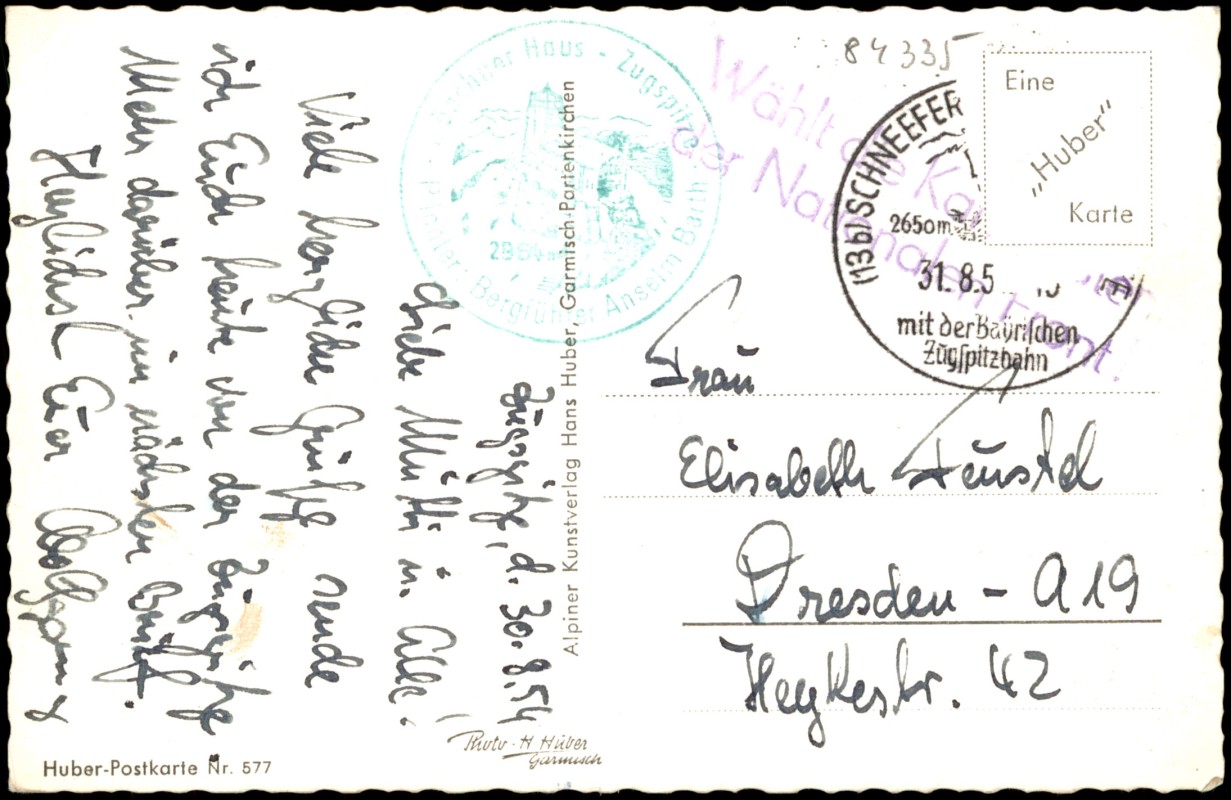 Zugspitze, d. 30.8.54
Liebe Mutti u. Alle!
Viele herzliche Grüße sende
ich Euch heute von der Zugspitze
Mehr darüber im nächsten Brief.
Herzlichst Euer Wolfgang
Huber-Postkarte Nr. 577
Photo-H Huber
Garmisch
Alpiner Kunstverlag Hans Huber, Garmisch-Partenkirchen
Haus - Zugspitze
2964m
Pächter: Bergführer Anselm Barth
84335
Wählt die
der Nationalen Front!
(13b) SCHNEEFER
2650m
31.8.5
mit der Bayrischen
Zugspitzbahn
Eine
„Huber"
Karte
Frau
Elisabeth
Dresden - A 19
Heykestr. 42